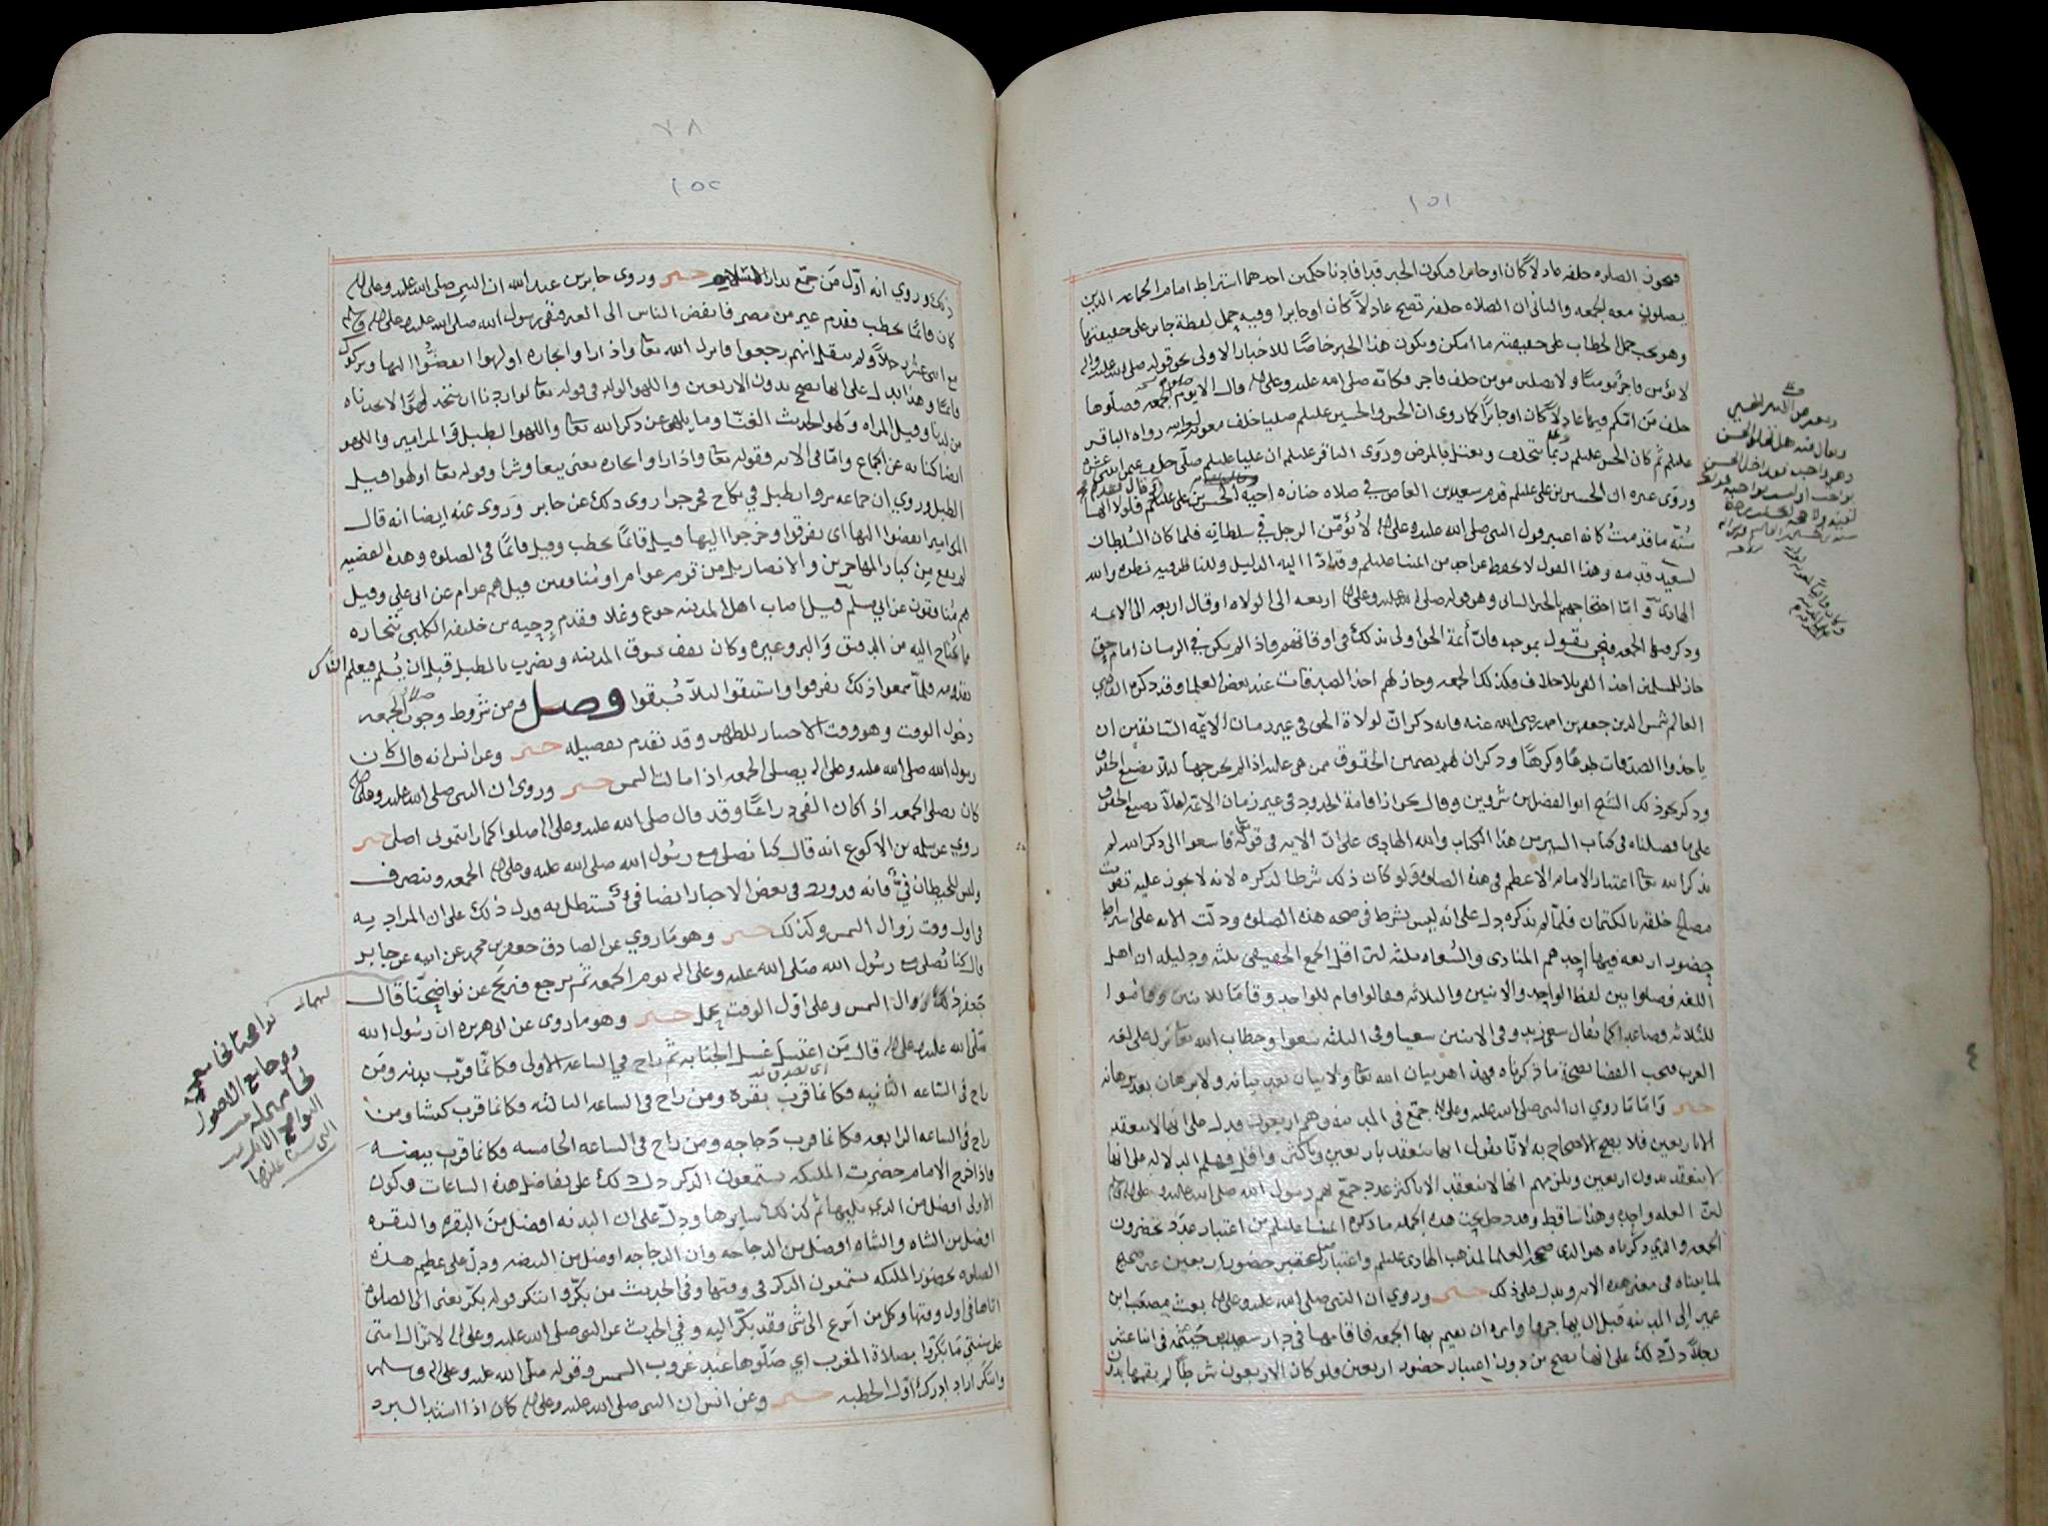 ١٥١
فتجوز الصلوه خلفه عادلاً كان او جايرا فيكون الخبر قد افادنا حكمين احدهما اشتراط امام الجماعه الذين
يصلون معه الجمعه والثانى ان الصلاه خلفه تصح عادلاً كان او جايرا وفيه حمل لفظة جاير على حقيقتها
وهو يجب حمل الخطاب على حقيقته ما امكن ويكون هذا الخبر خاصًا للاخبار الاولى نحو قوله صلى الله عليه واله
لا يؤمن فاجر مومنًا ولا يصلين مومن خلف فاجر فكانه صلى الله عليه وعلى اله قال الا يوم الجمعه فصلوها
خلف من امّكم فيها عادلاً كان او جايرًا كما روي ان الحسن والحسين عليلم صليا خلف معويه رواه الباقر
عليلم ثم كان الحسن عليلم ربما تخلف ويعتل بالمرض وروى الباقر عليلم ان عليا عليلم صلى خلف عمر
وروى غيره ان الحسين بن على عليلم قدم سعيد بن العاص في صلاه جنازه اخيه الحسن بن على عليلم فلولا انها
سُنّه ما قدمتُ كانه اعتبر قول النبى صلى الله عليه وعلى اله لا يُؤمّن الرجل في سلطانه فلما كان السُلطان
لسعيد قدمه وهذا القول لا يحفظ عن احد من ائمتنا عليلم وقد ادّا اليه الدليل وللناظر فيه نظره والله
الهادى وامّا احتجاجهم بالخبر الثانى وهو قوله صلى الله عليه وعلى اله اربعه الى الولاه او قال اربعه الى الائمه
وذكر منها الجمعه فنحن نقول بموجبه فانّ أئمة الحق اولى بذلك في اوقاتهم فاذا لم يكن في الزمان امام حق
جاز للمسلمين اخذ الفى بلا خلاف فكذلك الجمعه وجاز لهم اخذ الصدقات عند بعض العلما وقد ذكره القاضي
العالم شمس الدين جعفر بن احمد رضى الله عنه فانه ذكر انّ لولاة الحق في غير زمان الائمّه السّابقين ان
ياخذوا الصدقات طوعًا وكرهًا وذكر ان لهم تضمين الحقوق ممن هى عليه اذا لم يخرجها ليلا تضيع الحقوق
وذكر نحو ذلك الشيخ ابو الفضل بن شروين وقال يجوز اقامة الحدود في غير زمان الائمّه لئلا تضيع الحقوق
على ما فصلناه فى كتاب السير من هذا الكتاب والله الهادى على انّ الايه فى قوله تعا فاسعوا الى ذكر الله لم
يذكر الله تعا اعتبار الامام الاعظم فى هذه الصلوه ولو كان ذلك شرطا لذكره لانه لا يجوز عليه تفويت
مصالح خلقه بالكتمان فلمّا لم يذكره دل على انه ليس بشرط فى صحه هذه الصلوه ودلت الايه على اشتراط
حضور اربعه فيها احدهم المنادى والسُعاه ثلثه لان اقل الجمع الحقيقى ثلثه ودليله ان اهل
اللغه فصلوا بين لفظ الواحد والاثنين والثلاثه فقالوا قام للواحد وقاما للاثنين وقاموا
للثلاثه فصاعدا كما يقال سعى زيد وفى الاثنين سعيا وفى الثلثه سعوا وخطاب الله تعا نزل على لغه
العرب فيجب القضا بصحة ما ذكرناه فهذا هو بيان الله تعا ولا بيان بعد بيانه ولا برهان بعد برهانه
خبر وَامّا مَا روي ان النبى صلى الله عليه وعلى اله جمّع في المدينه وهم اربعون فدل على انها لا تنعقد
الا باربعين فلا يصح الاحتجاج به لانّا نقول انها تنعقد باربعين وباكثر واقل فهلم الدلاله على انها
لا تنعقد بدون اربعين ويلزمهم انها لا تنعقد الا باكثر عدد جمّع بهم رسول الله صلى الله عليه وعلى اله
لان العله واحده وهذا ساقط وقد دخل تحت هذه الجمله ما ذكره ائمتنا عليلم من اعتبار عدد يحضرون
الجمعه والذي ذكرناه هو الذى صححه العلما لمذهب الهادى عليلم واعتبار حضور اربعين غير صحيح
لما بيناه فى معنى هذه الايه ويدل على ذلك خبر وروي ان النبى صلى الله عليه وعلى اله بعث مصعب ابن
عمير إلى المدينه قبل ان يهاجر وامره ان يقيم بها الجمعه فاقامها في دار سعد بن خيثمه في اثنا عشر
رجلاً دلّ ذلك على انها تصح من دون اعتبار حضور اربعين ولو كان الاربعون شرطًا لم يقمها بدون
٧٨
١٥٢
ذلك وروي انه اوّل مَن جمّع بدار خبر وروى جابر بن عبد الله ان النبى صلى الله عليه وعلى اله
كان قائمًا يخطب فقدم عير من مصر فانفض الناس الى العير فبقى رسول الله صلى الله عليه وعلى اله وسلم
مع اثنى عشر رجلاً ولم ينقل انهم رجعوا فانزل الله تعا واذا راوا تجاره او لهوا انفضّوا اليها وتركوك
قائمًا وهذا يدل على انها تصح بدون الاربعين واللهو الولد فى قوله تعا لو اردنا ان نتخذ لهوًا لاتخذناه
من لدنا وقيل المراه وَلهو الحديث الغنّا وما يلهى عن ذكر الله تعا واللهو الطبل والمزامير واللهو
ايضا كنايه عن الجماع وامّا فى الايه فقوله تعا واذا راوا تجاره يعنى بيعا وشرا وقوله تعا او لهوا قيل
الطبل وروي ان جماعه مروا بطبل في نكاح فخرجوا روى ذلك عن جابر وَروى عنه ايضا انه قال
المزامير انفضوا اليها اى تفرقوا وخرجوا اليها قيل قائمًا يخطب وقيل قائمًا فى الصلوه وهذه القضيه
لم يقع من كبار المهاجرين والانصار بل من قوم عوام او مُنافقين قيل هم عوام عن ابى على وقيل
هم مُنافقون عن ابي مسلم قيل اصاب اهل المدينه جوع وغلا فقدم دحيه بن خليفه الكلبى بتجاره
مما يحتاج اليه من الدقيق وَالبر وغيره وكان يقف بسوق المدينه ويضرب بالطبل قبل ان يُسلم فيعلم الناس
بقدومه فلمّا سمعوا ذلك تفرقوا واستبقوا ليلا يُسبقوا فصل ومن شروط وجوب الجمعه
دخول الوقت وهو وقت الاختيار للظهر وقد تقدم تفصيله خبر وعن انس انه قال كان
رسول الله صلى الله عليه وعلى اله يصلى الجمعه اذا مالت الشمس خبر وروى ان النبى صلى الله عليه وعلى اله
كان يصلى الجمعه اذا كان الفى ذراعًا وقد قال صلى الله عليه وعلى اله صلوا كما رايتمونى اصلى خبر
روي عن سلمه بن الاكوع انه قال كنا نصلى مع رسُول الله صلى الله عليه وعلى اله الجمعه وننصرف
وليس للحيطان فيٌ فانه ورد فى بعض الاخبار ايضا فيٌ نستظل به فدل ذلك على ان المراد به
فى اول وقت زوال الشمس وكذلك خبر وهو مَا روي عن الصادق جعفر بن محمد عن ابيه عن جابر
قال كنا نُصلى مع رسُول الله صلى الله عليه وعلى اله يوم الجمعه ثم نرجع فنريح عن نواضحنا قال
جعفر ذلك زوال الشمس وعلى اوّل الوقت يحمل خبر وهو ما روى عن ابى هريره ان رسُول الله
صلى الله عليه وعلى اله قال مَن اغتسل غسل الجنابه ثم راح في الساعه الاولى فكانّما قرّب بدنه ومَن
راح فى السّاعه الثّانيه فكانما قرب بقره ومن راح فى الساعه الثالثه فكانما قرب كبشا ومن
راح فى الساعه الرابعه فكانما قرب دَجاجه ومن راح فى الساعه الخامسه فكانما قرب بيضه
فاذا خرج الامام حضرت الملئكه يستمعون الذكر دل ذلك على تفاضل هذه الساعات فيكون
الاولى افضل من الذي يليها ثم كذلك سايرها ودلّ على ان البدنه افضل من البقره والبقره
افضل من الشاه والشاه افضل من الدجاجه وان الدجاجه افضل من البيضه ودلّ على عظيم هذه
الصلوه بحضور الملئكه يستمعون الذكر فى وقتها وفى الحديث من بكّر وابتكر قوله بكّر يعنى الى الصلوه
اتاها فى اول وقتها وكل من اسرع الى شى فقد بكّر اليه وفي الحديث عن النبى صلى الله عليه وعلى اله لا تزال امتى
على سنتي مَا بكّروا بصلاة المغرب اي صَلّوها عند غروب الشمس وقوله صلى الله عليه وعلى اله وسلم
وابتكر اراد ادرك اوّل الخطبه خبر وعن انس ان النبى صلى الله عليه وعلى اله كان اذا اشتد البرد